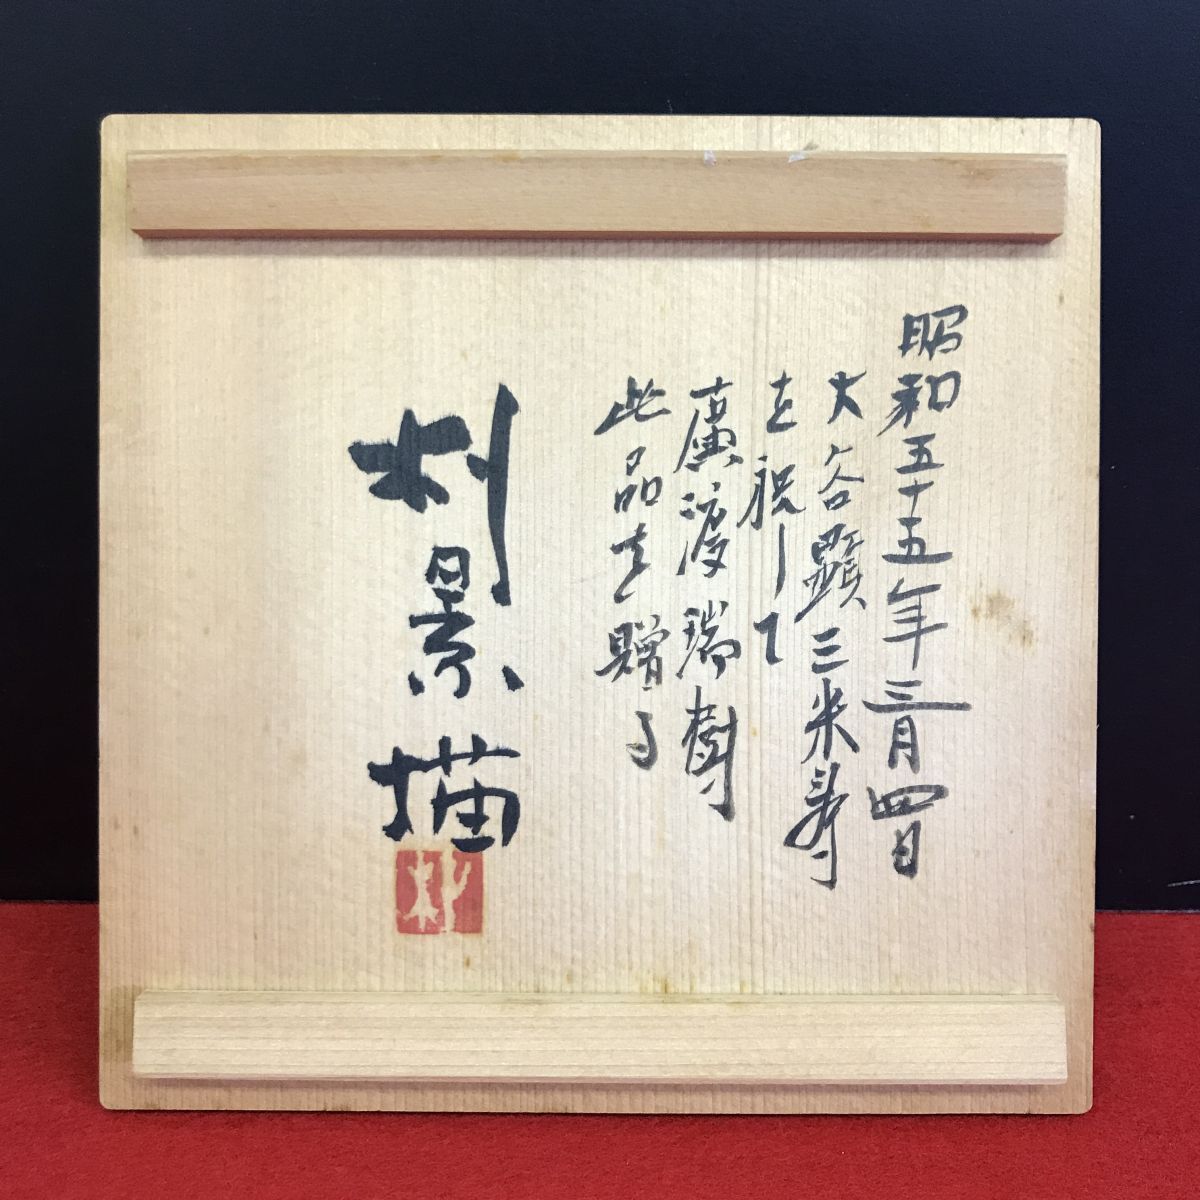 昭和五十五年三月四日
大谷顕三米寿
を祝して
廣渡瑞樹
此品を贈る
景描